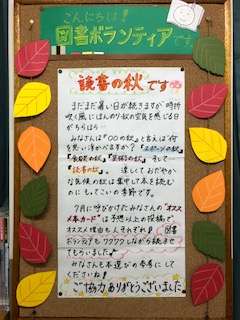 こんにちは!
図書ボランティアです
読書の秋です
まだまだ暑い日が続きますが 時折
吹く風にほんのり秋の空気を感じる日
がちらほら…
みなさんは『〇〇の秋』と言えば何
を思い浮かべますか?『スポーツの秋』
『食欲の秋』『芸術の秋』 そして
『読書の秋』。 涼しくておだやか
な気候の秋は集中して本を読む
のにもってこいの季節です。
7月に呼びかけたみなさんの"オススメ
本カード"は予想以上の投稿で
オススメ理由も人それぞれ! 図書
ボランティアもワクワクしながら読ませ
てもらいました。
みなさんも本選びの参考にして
くださいね!
ご協力ありがとうございました